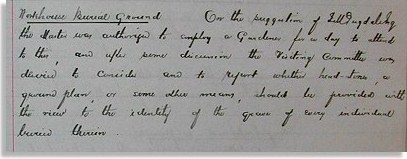 Workhouse Burial Ground On the suggestion of
the Master was authorised to employ a Gardener for a day to attend
to this, and after some discussion the Visiting Committee was
desired to consider and to report whether head-stone, a
ground plan, or some other means, should be provided with
the view to the identity of the grave of every individual
buried therein